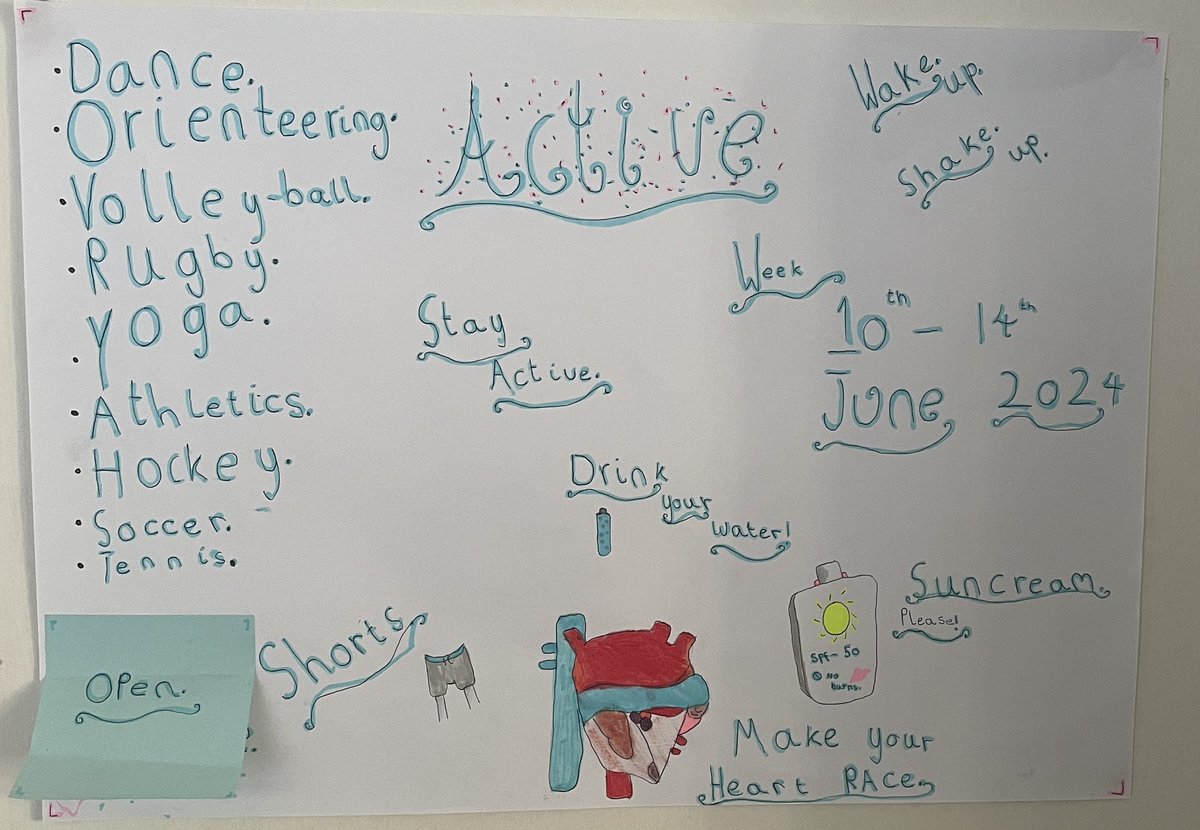 · Dance.
· Orienteering.
· Volley-ball.
· Rugby.
· Yoga.
· Athletics.
· Hockey.
· Soccer.
· Tennis.
Open.
Active
Wake up.
Shake up.
Week
10th - 14th
June 2024
Stay
Active.
Drink
your
water!
Shorts
SPF-50
No
burns.
Suncream.
Please!
Make your
Heart RACe.